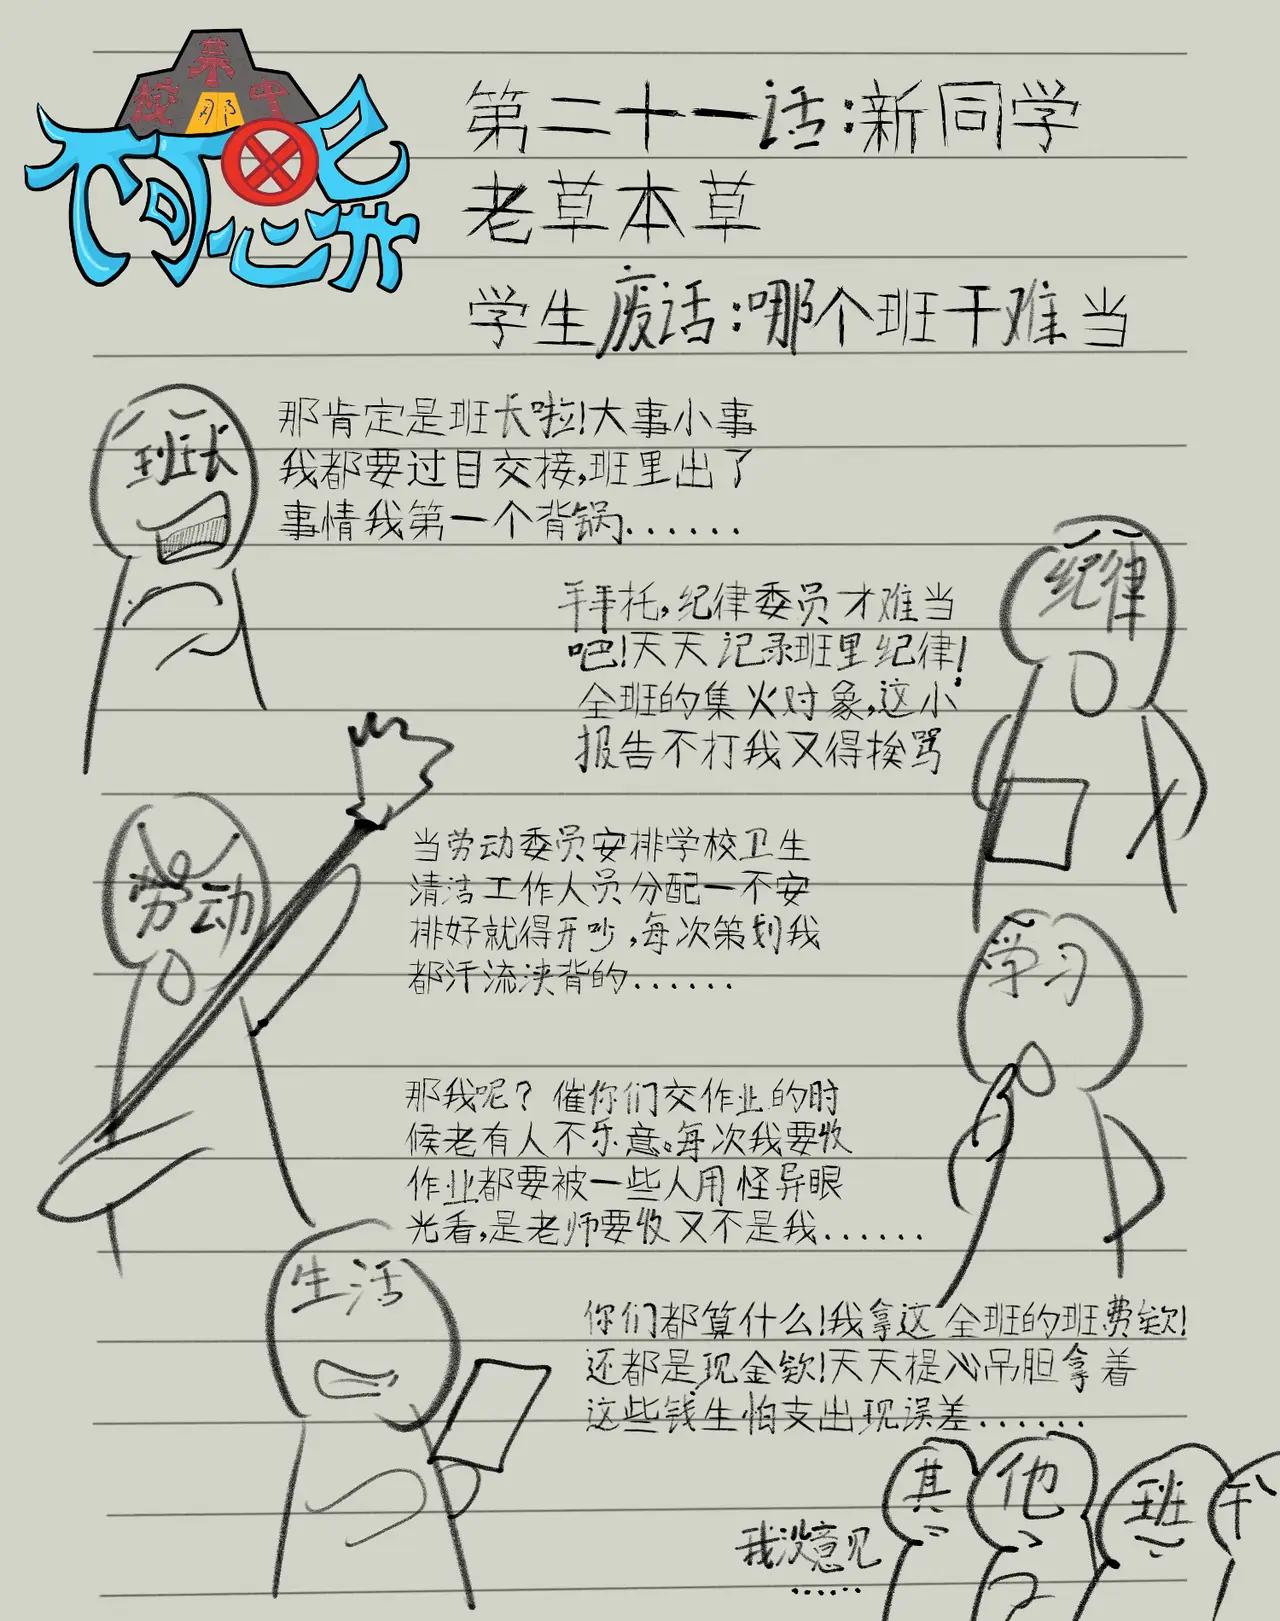 校墓那
不可心
第二十一话:新同学
老草本草
学生废话:哪个班干难当
班长
那肯定是班长啦!大事小事
我都要过目交接,班里出了
事情我第一个背锅......
纪律
拜托,纪律委员才难当
吧!天天记录班里纪律!
全班的集火对象,这小
报告不打我又得挨骂
劳动
当劳动委员安排学校卫生
清洁工作人员分配一不安
排好就得开吵,每次策划我
都汗流浃背的......
学习
那我呢?催你们交作业的时
候老有人不乐意。每次我要收
作业都要被一些人用怪异眼
光看,是老师要收又不是我......
生活
你们都算什么!我拿这全班的班费欸!
还都是现金欸!天天提心吊胆拿着
这些钱生怕支出现误差......
其他班干
我没意见
......